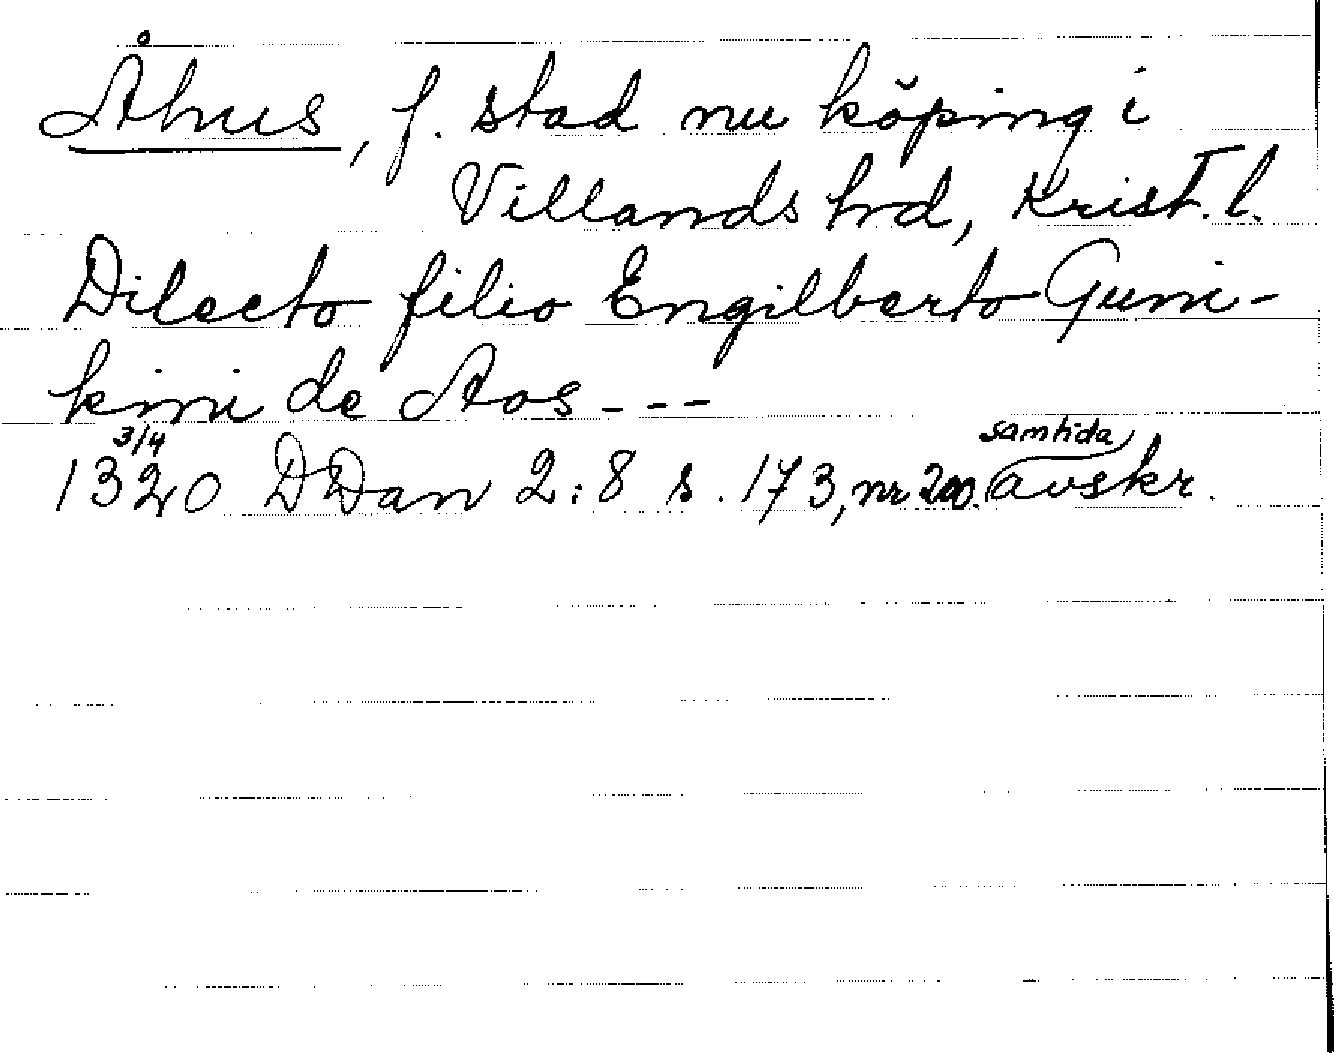 Åhus, f. stad nu köping i
Villands hrd, Krist. l.
Dilecto filio Engilberto Guni-
kini de Aos ---
3/4 samtida
1320 DDan 2:8 s. 173, nr 200. avskr.